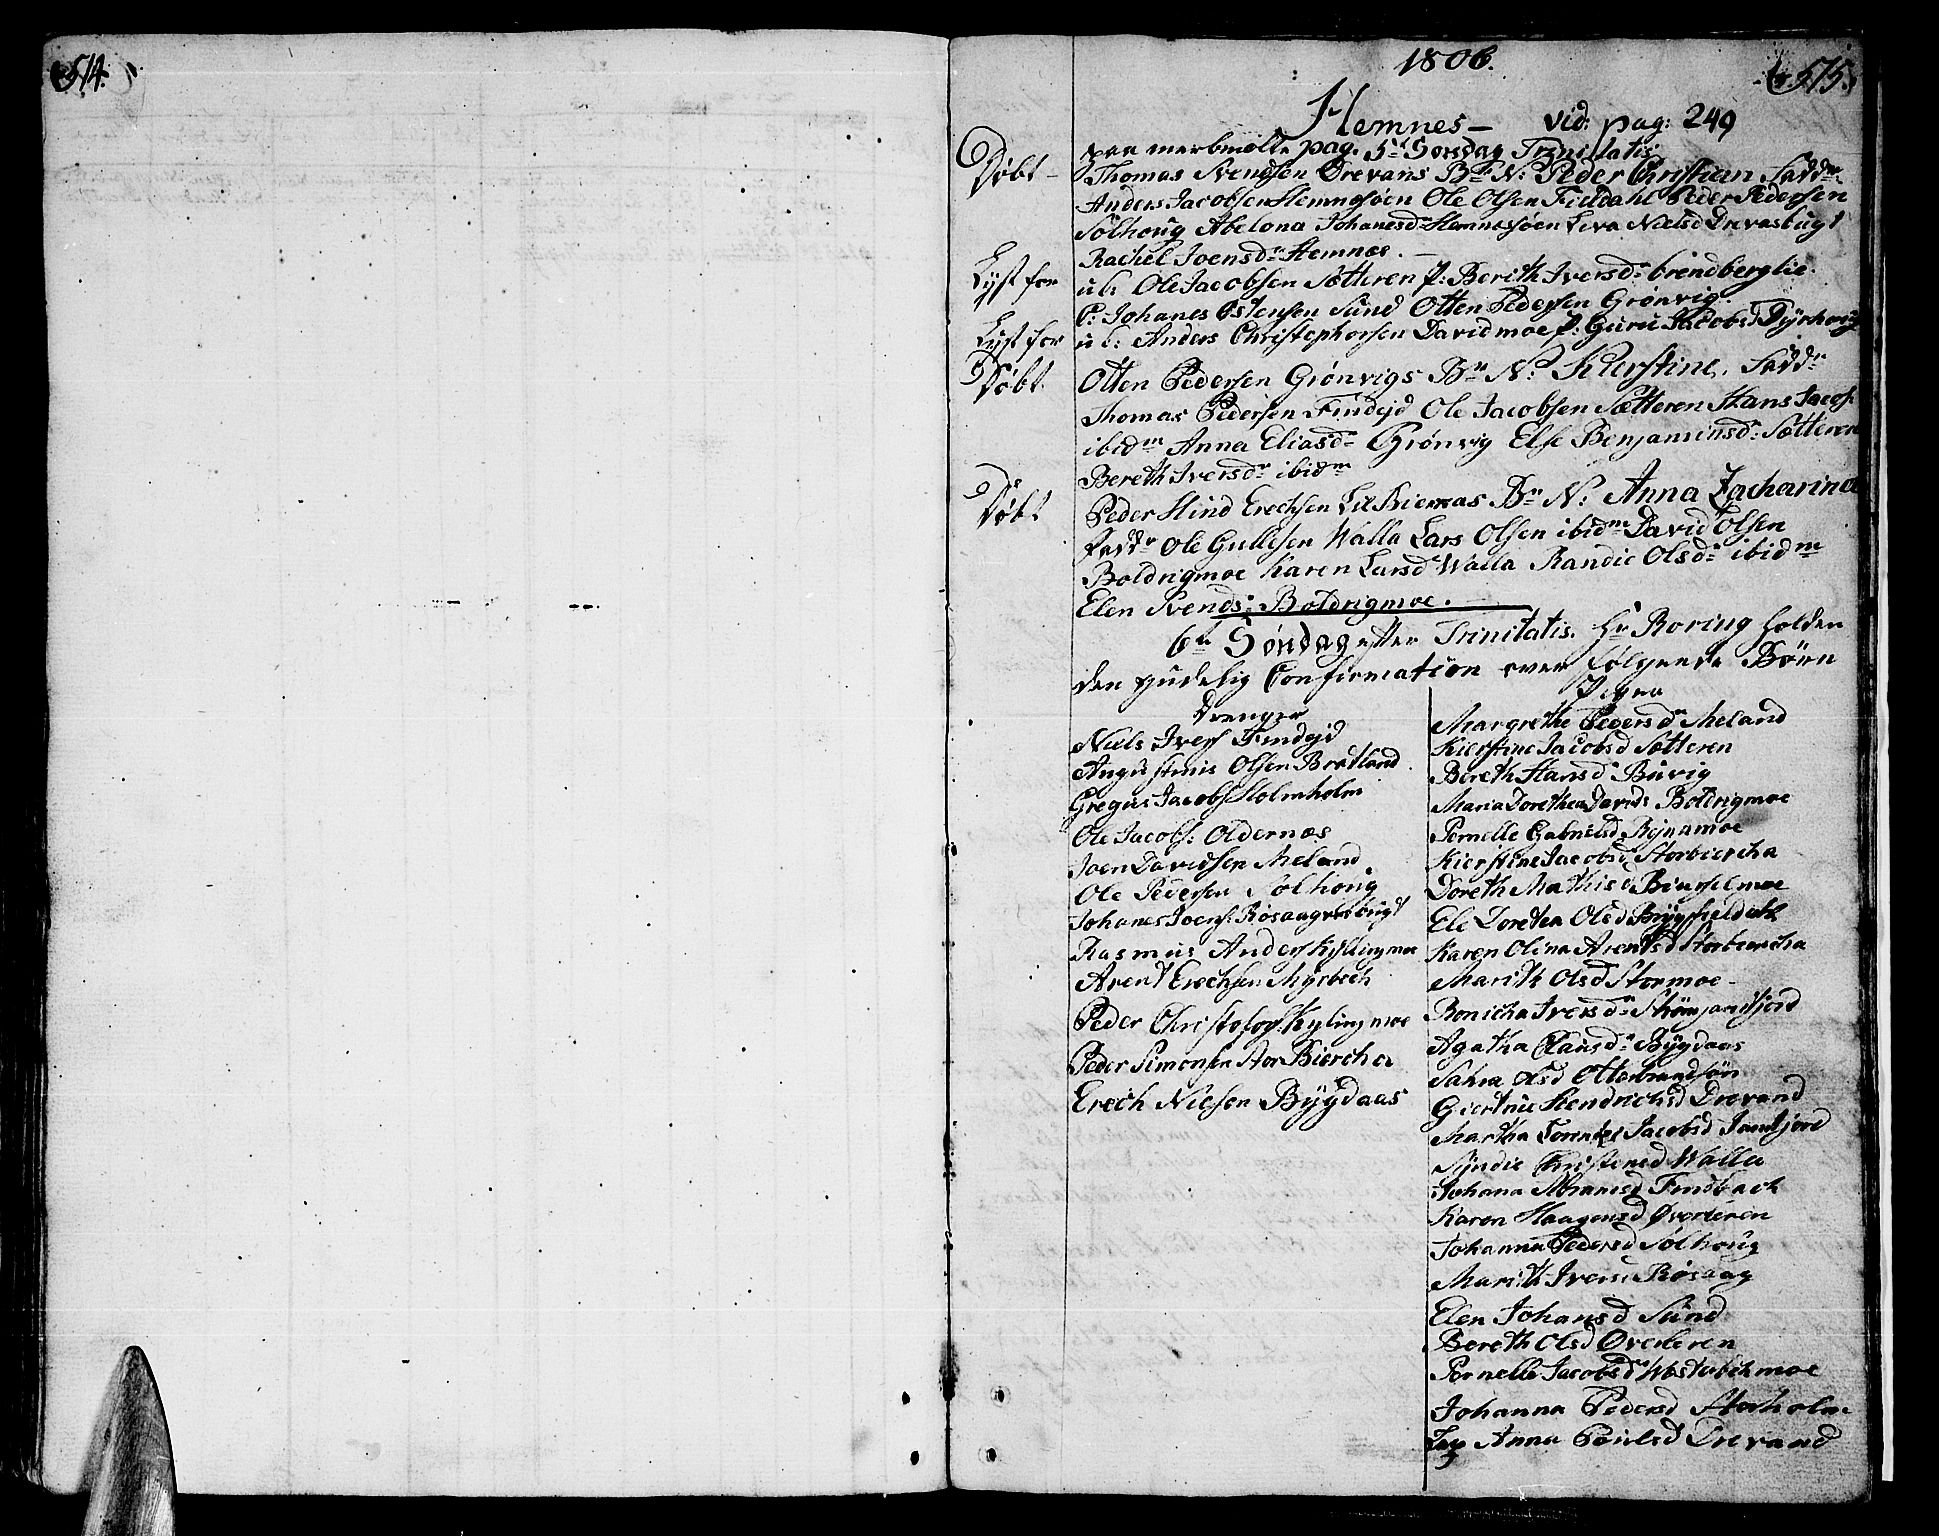 514.
1806.
575.
Hemnes — vid: pag: 249
paa pag. 5te Søndag Trinitatis
Døbt — Thomas Svendsen Drevans Bn N: Peder Christian. Fadd:
Anders Jacobsen Hemnesøen Ole Olsen Fieldahl Peder Pedersen
Solhoug Abelona Johanesd Hemnessøen Niels d
Rachel Joensd: Hemnes. —
Lyst for ub: Ole Jacobsen Sætteren P: Berith Iversd: brendberglie.
C: Johanes Østensen Sund Otten Pedersen Grønvig.
Lyst for ub: Anders Christophersen Davidmoe P: Guru Jacobsd Dyrhoug
Døbt Otten Pedersen Grønvigs Bn N: Kierstine. Fadd:
Thomas Pedersen Findejd Ole Jacobsen Sætteren Hans Jacobs:
ibidm Anna Eliasd: Grønvig Else Benjaminsd: Sætteren
Bereth Iversd: ibidm
Døbt Peder Hind Erechsen Bn N: Anna Zacharina
Fadd: Ole Gullesen Walla Lars Olsen ibidm David Olsen
Boldrigmoe Karen Larsd Walla Randie Olsd: ibidm
Elen Svends: Boldrigmoe.
6te Søndag efter Trinitatis. Hr Roring holden
den gudelig Confirmation over følgende Børn
Drenger
Niels Ivers Findejd
Angustinus Olsen Bratland
Gregus Jacobs Holmholm
Ole Jacobs: Oldernæs
Joen Davidsen Meland
Ole Pedersen Solhoug
Johanes Joens: Røsaagresbugt
Rasmus Anders Kyllingmoe
Arent Erechsen Myrbech
Peder Christofers Kylingmoe
Peder Simonsen Stor Biercha
Erech Nielsen Bygdaas
Piger
Margrethe Pedersd: Meland
Kierstine Jacobsd Sætteren
Bereth Hansd: Buvig
Maria Dorethea Davids Boldrigmoe
Pernelle Gabrielsd
Kierstine Jacobsd Storbiercha
Doreth Mathisd
Ele Dorethea Olsd
Karen Olina Arentsd Storbiercha
Marith Olsd Stormoe
Bonicha Iversd:
Agatha Clausd: Bygdaas
Sahra Olsd
Giertrue Hendrichsd Drevand
Martha Jacobsd
Syndie Christensd Walla
Johana Abramsd Findbach
Karen Haagensd Øverleren
Johanna Pedersd Solhoug
Marith Ivers: Røsaag
Elen Johansd Sund
Bereth Olsd Øverleren
Pernelle Jacobsd
Johanna Pedersd Storholm
Anna Poulsd Drevand